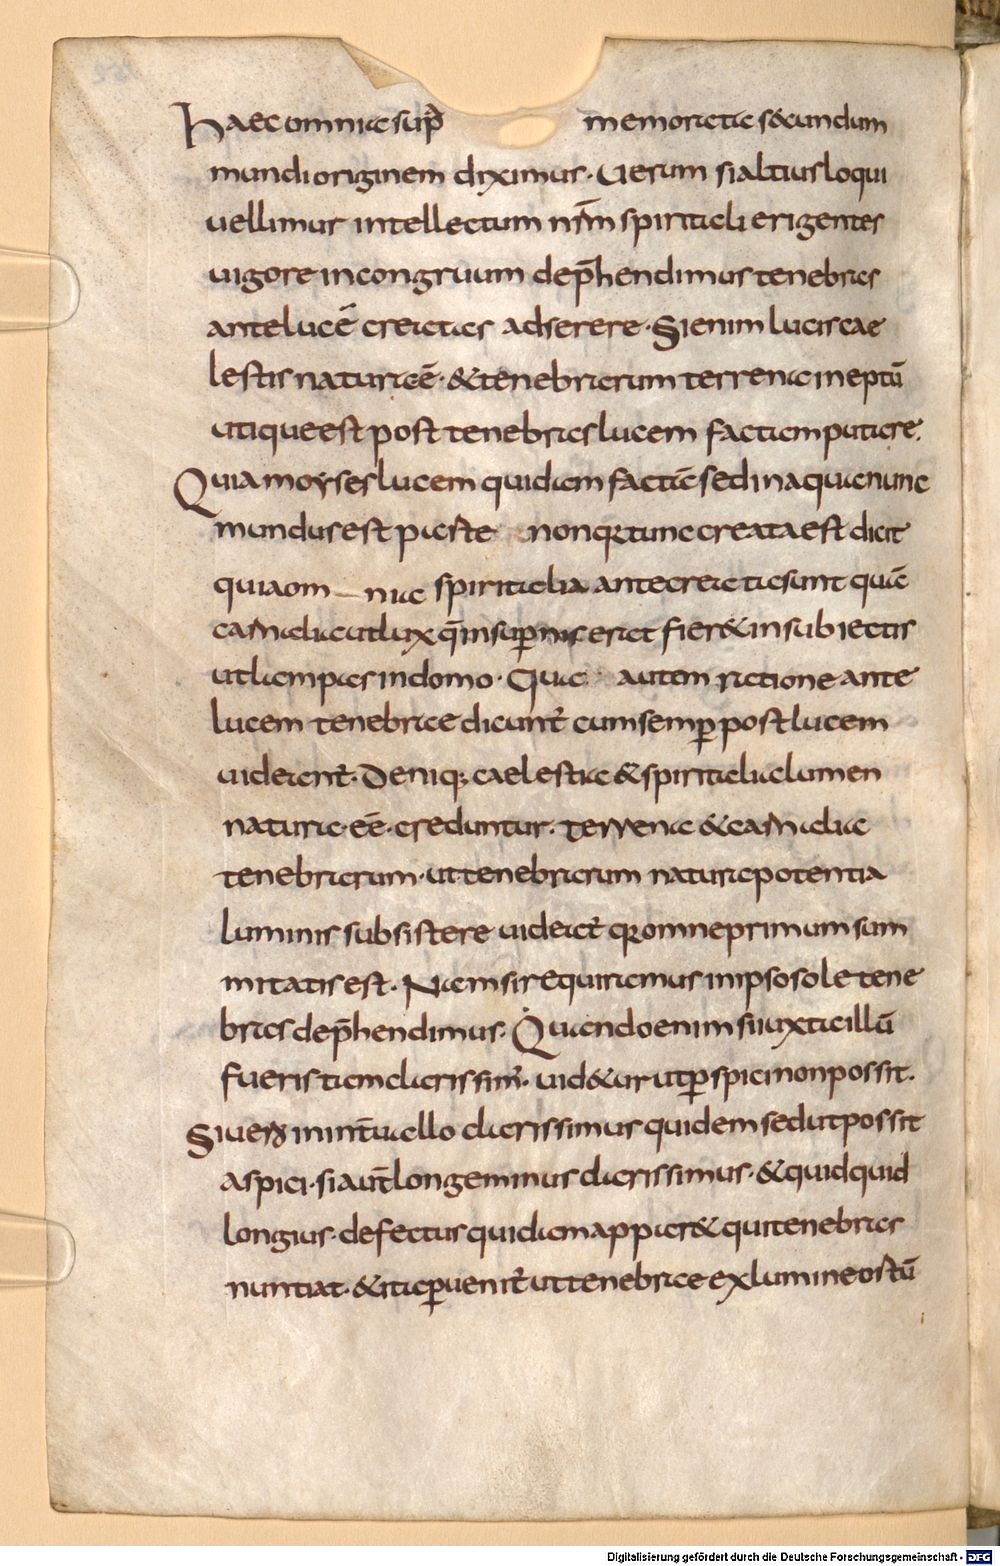 Haec omnia sup̄ memorata secundum
mundi originem diximus. Uerum si altius loqui
uellimus intellectum nr̄m spiritali erigentes
uigore incongruum dep̄hendimus tenebras
ante lucē creatas adserere. Si enim lucis cae
lestis naturā. & tenebrarum terrena ineptū
utique est post tenebras lucem factam putare.
Quia moyses lucem quidam factā sed in aqua nunc
mundus est p̱aste non qd̄ tunc creata est dicit
quia om nia spiritalia ante creata sunt quā
carnalia ut lux quā in sup̱nis erat fier& in subiectis
ut lampas in domo. Qua autem ratione ante
lucem tenebrae dicunt̄ cum semp̱ post lucem
uideant̄. Deniq; caelestia & spiritalia lumen
natura eē creduntur. terrena & carnalia
tenebrarum. ut tenebrarum natura potentia
luminis subsistere uideat̄ qd̄ omne primum sum
mitatis est. Nam si requiramus in ipso sole tene
bras dep̄hendimus. Quando enim si iuxta illū
fueris tam clarissim̄. uid&ur ut p̱spici non possit.
Si uero in int̄uallo clarissimus quidem sed ut possit
aspici. si aut̄ longe minus clarissimus. & quidquid
longius. defectus quidam app̱ar& qui tenebras
nuntiat. & ita p̱uenit̄ ut tenebrae ex lumine ostū
Digitalisierung gefördert durch die Deutsche Forschungsgemeinschaft - DFG